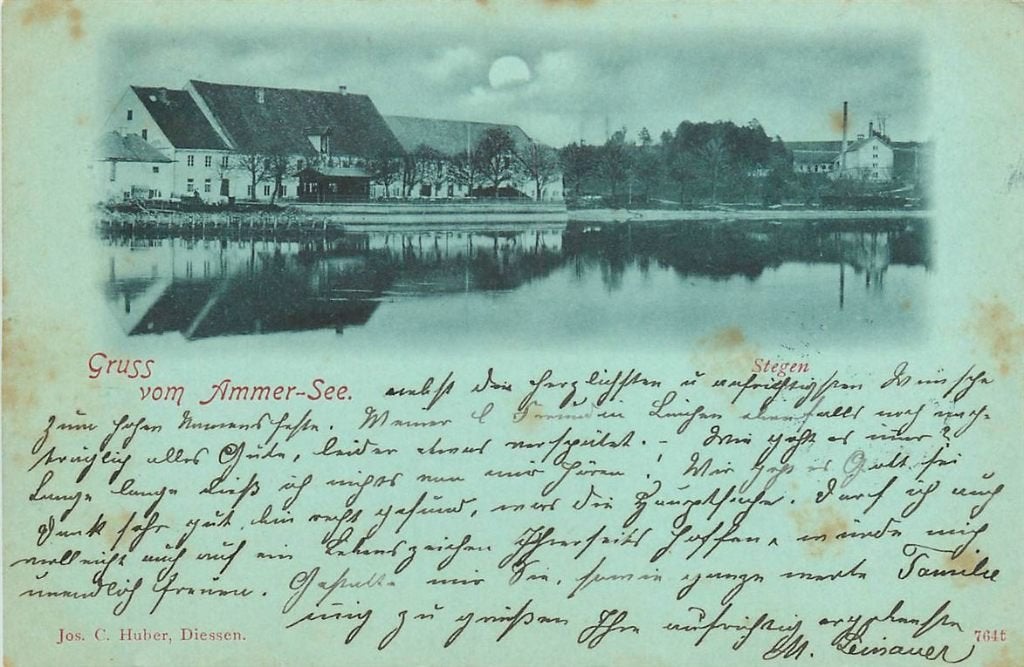 Gruss
Stegen
vom Ammer-See. nebst die herzlichsten u aufrichtigsten Wünsche
zum hohen Namensfeste. Meiner l Freundin ebenfalls noch nach-
träglich alles Gute, leider etwas verspätet. - Wie geht es immer?
Lange lange ließ ich nichts von mir hören! Mir geht es Gott sei
Dank sehr gut, bin recht gesund, was die Hauptsache. Darf ich auch
vielleicht auch auf ein Lebenszeichen Ihrerseits hoffen, würde mich
unendlich freuen. Gestatte mir Sie, sowie ganze werte Familie
zu grüßen Ihre aufrichtig ergebenste
Jos. C. Huber, Diessen.
M.